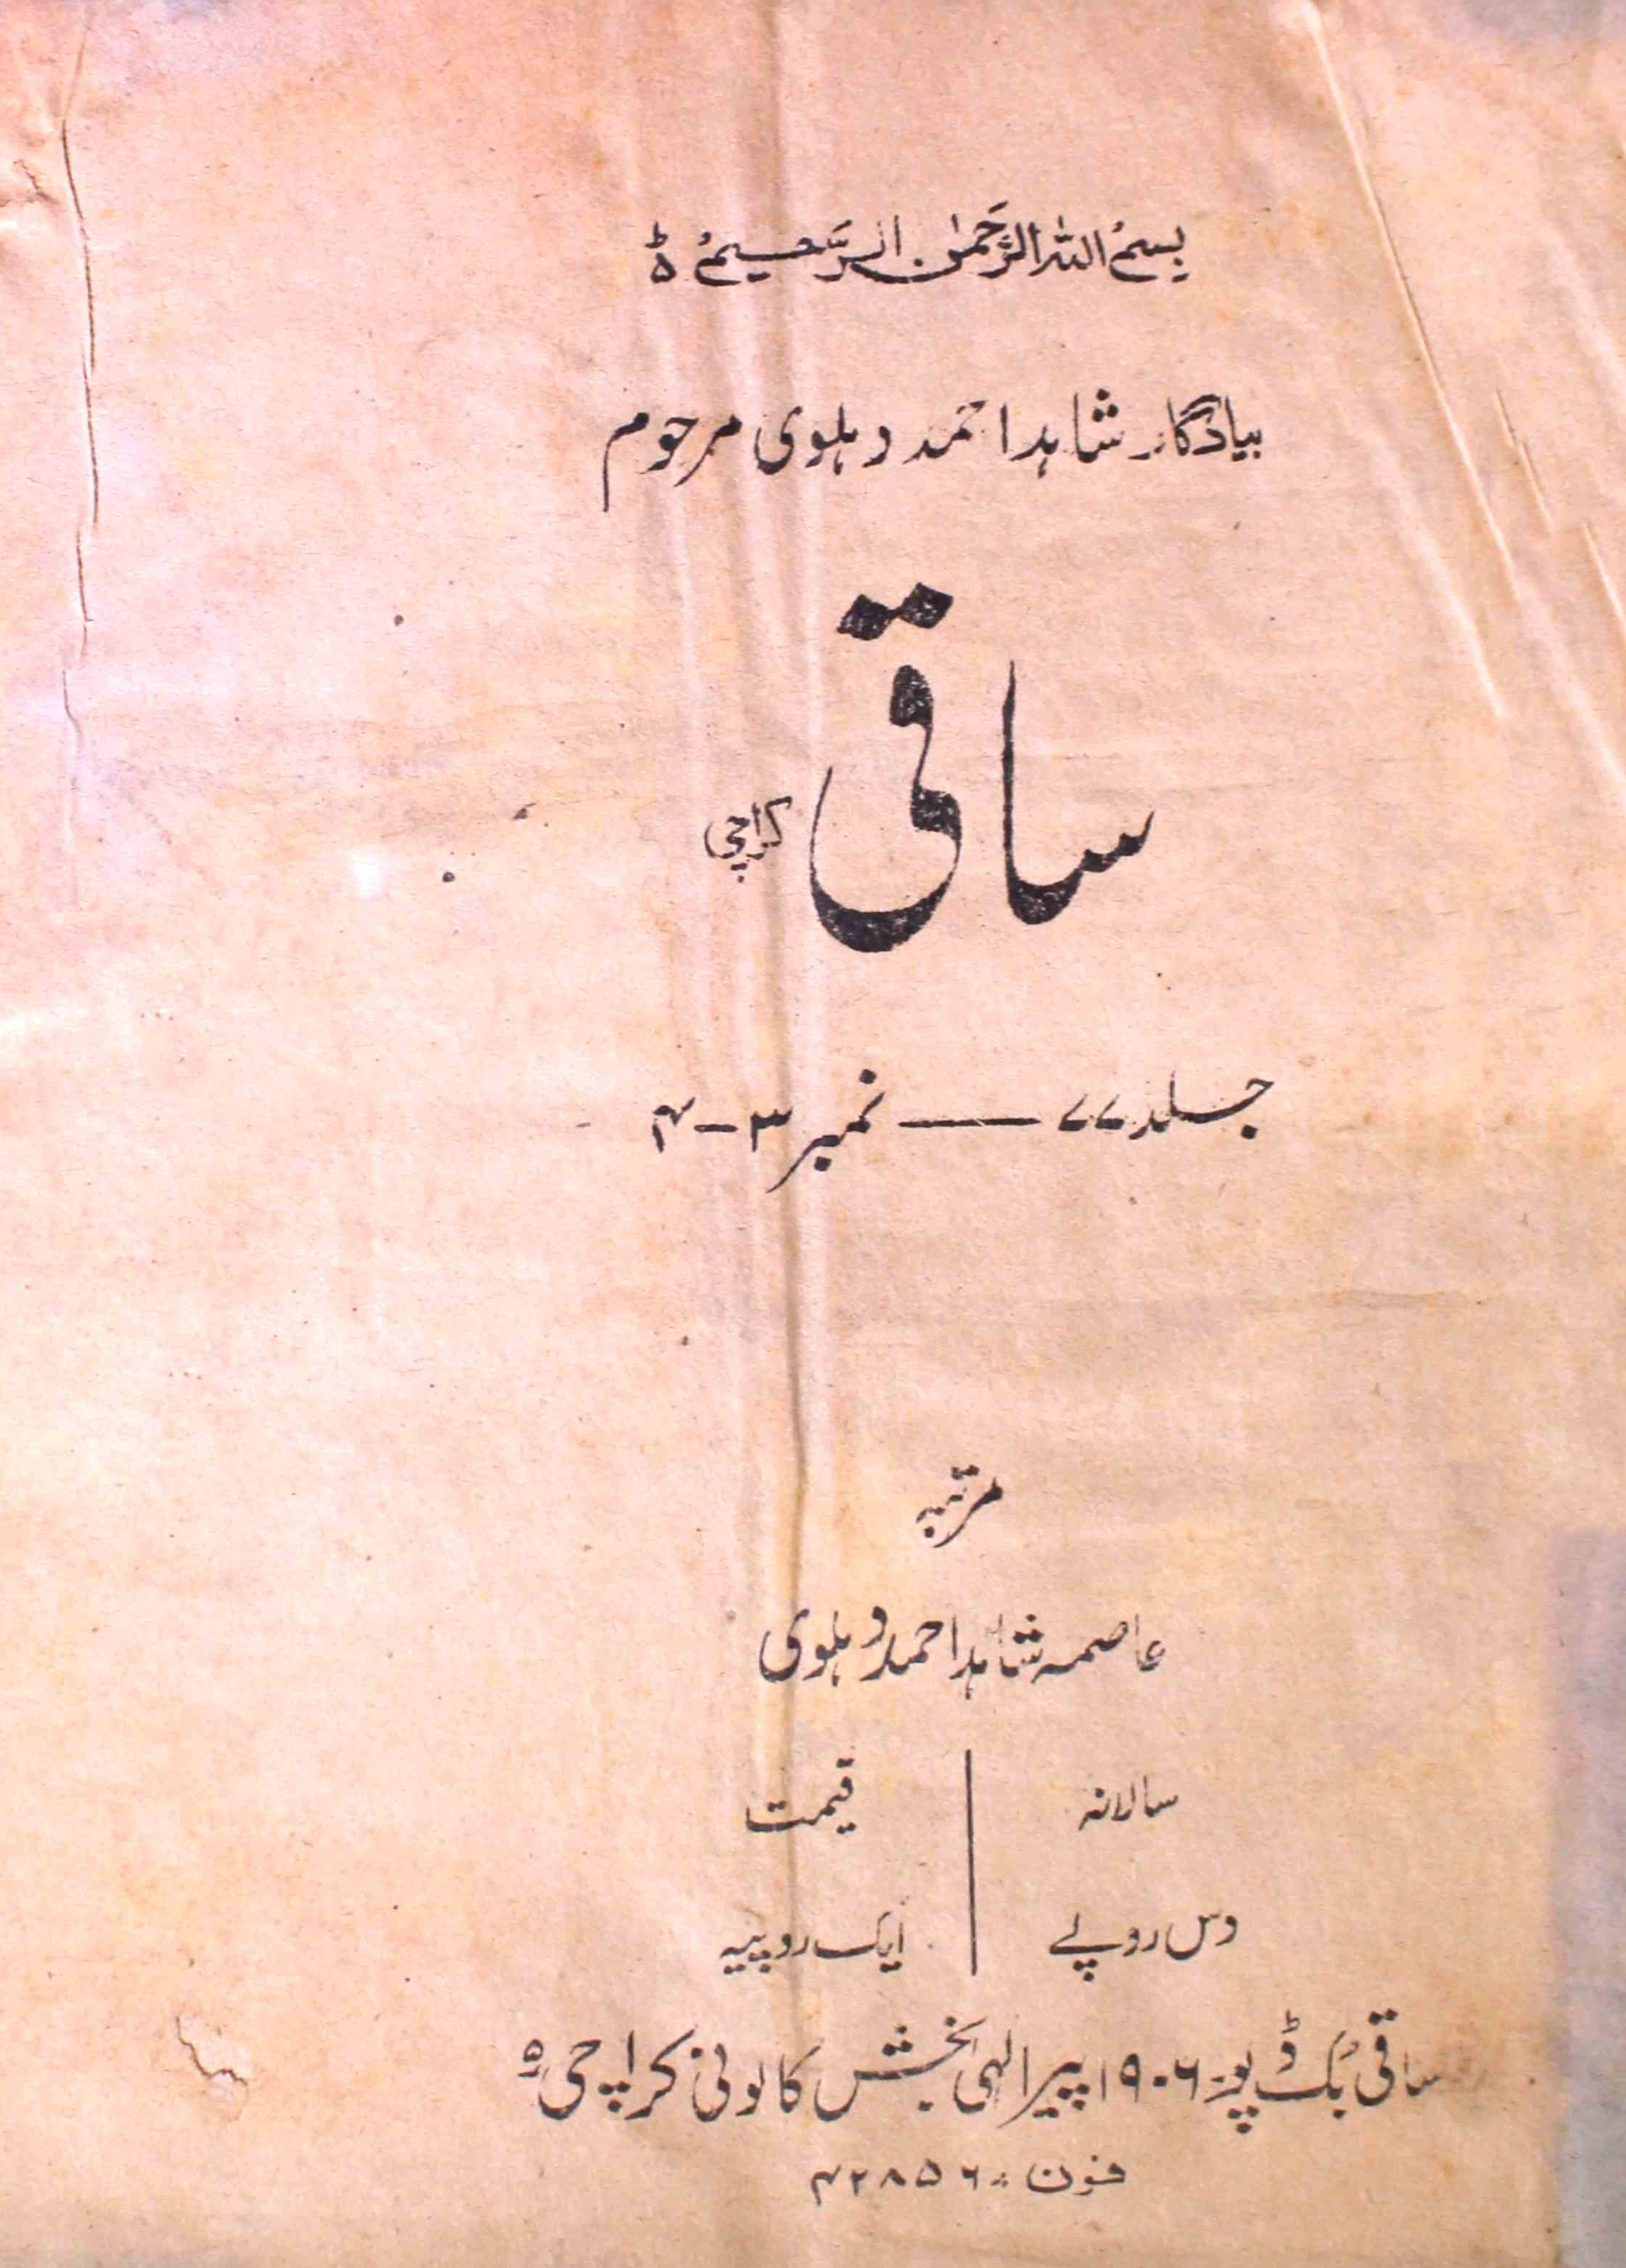 بِسْمِ اللہِ الرَّحْمٰنِ الرَّحِیْمِ ۵ط
بیادگار شاہد احمد دہلوی مرحوم
ساقی
کراچی
جلد ۷۷ — نمبر ۳-۴
مرتبہ
عاصمہ شاہد احمد دہلوی
سالانہ | قیمت
دس روپے | ایک روپیہ
ساقی بک ڈپو: ۱۹۰۶ پیر الٰہی بخش کالونی کراچی ۵
فون: ۴۲۸۵۶